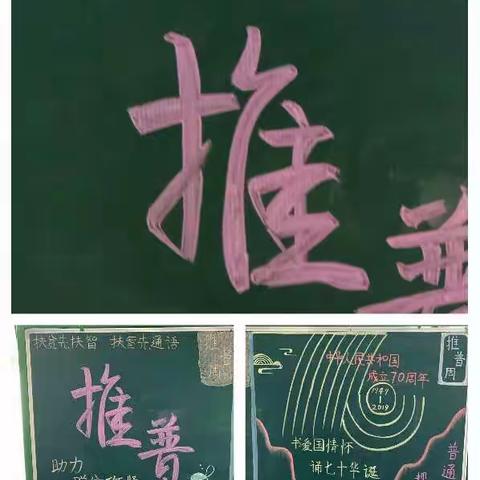 推普
扶贫先扶智 扶智先通语
推普周
推普
助力
中华人民共和国
成立70周年
1949
2019
书爱国情怀
诵七十华诞
推普周
普通